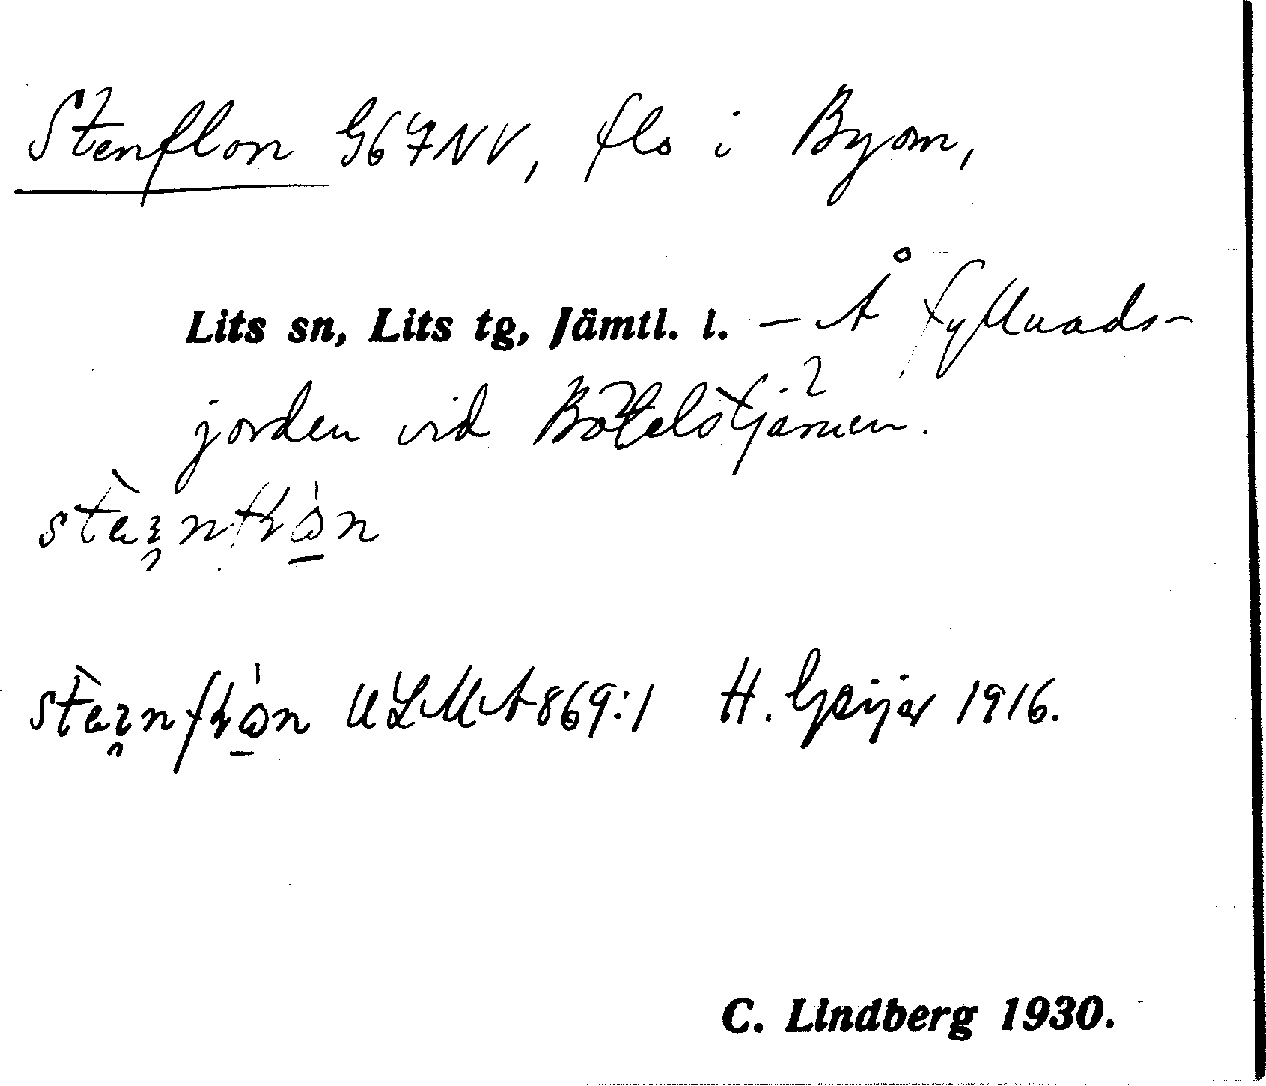 Stenflon G67NV, flo i Byom,
Lits sn, Lits tg, Jämtl. l. – Å Fyllnads-
jorden vid Bötelstjärnen.
ULMA 869:1 H. Geijer 1916.
C. Lindberg 1930.